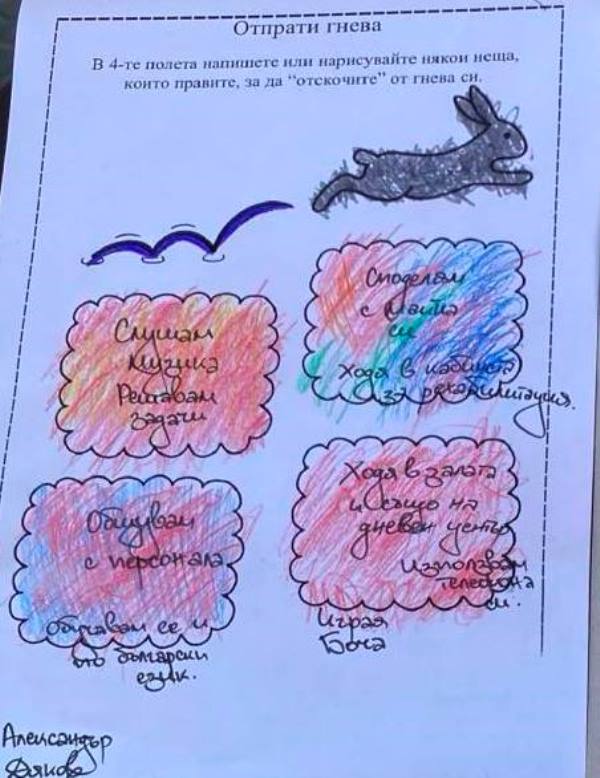 Отпрати гнева
В 4-те полета напишете или нарисувайте някои неща,
които правите, за да “отскочите” от гнева си.
Слушам
музика
Решавам
задачи
Споделям
с майка
си
Ходя в кабинета
за рехабилитация.
Общувам
с персонала
Обучавам се и
по български
език.
Ходя в залата
и също на
дневен център
Използвам
телефона
си.
Играя
Боча
Александър